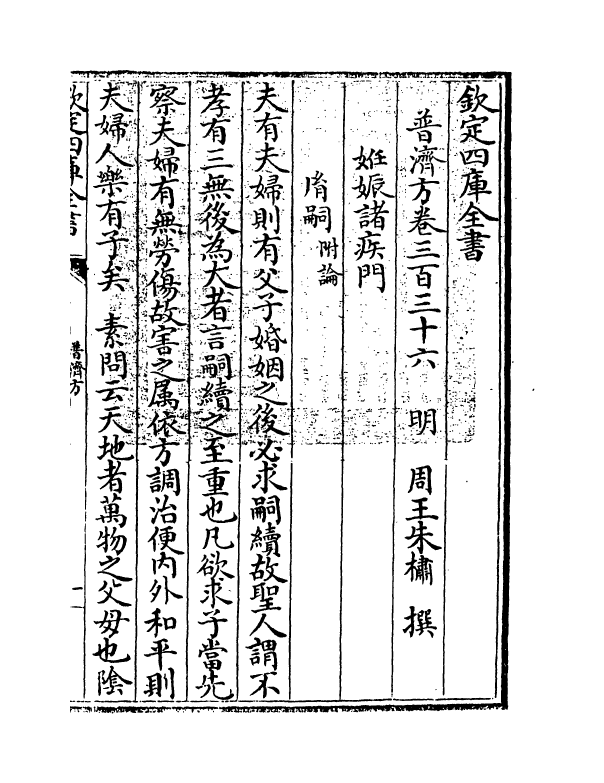 欽定四庫全書
普濟方卷三百三十六　明　周王朱橚　撰
姙娠諸疾門
脩嗣附論
夫有夫婦則有父子婚姻之後必求嗣續故聖人謂不
孝有三無後為大者言嗣續之至重也凡欲求子當先
察夫婦有無勞傷故害之属依方調治便内外和平則
夫婦人樂有子矣　素問云天地者萬物之父母也陰
欽定四庫全書
普濟方
一